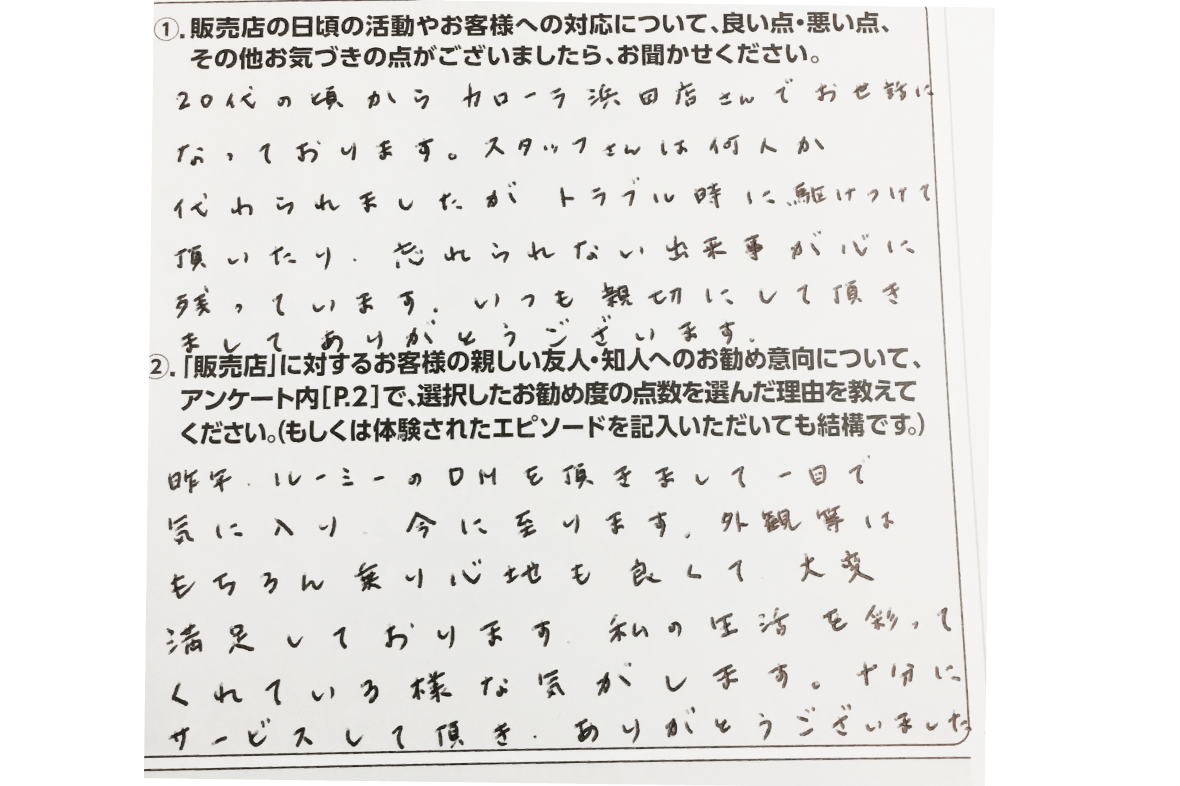 ①. 販売店の日頃の活動やお客様への対応について、良い点・悪い点、
その他お気づきの点がございましたら、お聞かせください。
20代の頃から カローラ浜田店さんでお世話に
なっております。スタッフさんは何人か
代わられましたが トラブル時に駆けつけて
頂いたり、忘れられない出来事が心に
残っています。いつも親切にして頂き
ましてありがとうございます。
②.「販売店」に対するお客様の親しい友人・知人へのお勧め意向について、
アンケート内[P.2]で、選択したお勧め度の点数を選んだ理由を教えて
ください。(もしくは体験されたエピソードを記入いただいても結構です。)
昨年、ルーミーのDMを頂きまして一目で
気に入り、今に至ります。外観等は
もちろん乗り心地も良くて 大変
満足しております。私の生活を彩って
くれている様な気がします。十分に
サービスして頂き、ありがとうございました